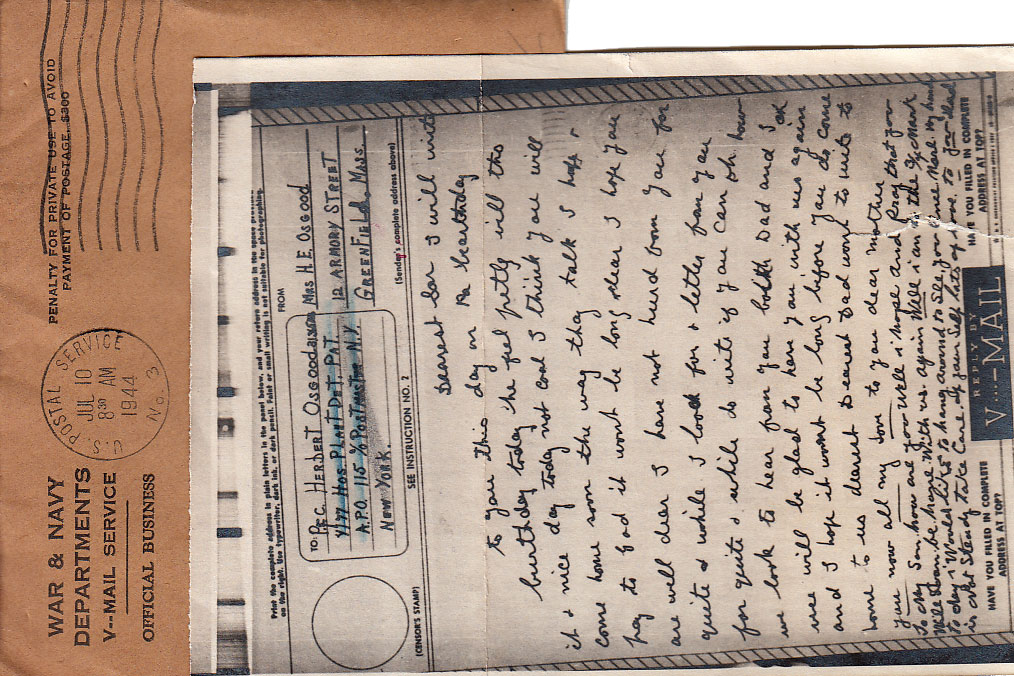 WAR & NAVY
DEPARTMENTS
V--MAIL SERVICE
OFFICIAL BUSINESS
U.S. POSTAL SERVICE
JUL 10
8 30 AM
1944
No. 3
PENALTY FOR PRIVATE USE TO AVOID
PAYMENT OF POSTAGE, $300
Print the complete address in plain letters in the panel below, and your return address in the space provided
on the right. Use typewriter, dark ink, or dark pencil. Faint or small writing is not suitable for photographing.
FROM
TO: Pfc. HERBERT OSGOOD
HOS PLANT DET. PAT.
A.P.O. 115 % POSTMASTER N.Y.
NEW YORK.
MRS H.E. OSGOOD
12 ARMORY STREET
GREENFIELD, MASS.
(CENSOR'S STAMP)
SEE INSTRUCTION NO. 2
(Sender's complete address above)
Dearest Son I will write
to you this day on Pa bearthday
burthday today he feel pretty will tho
it + nice day today not coal I think you will
come home soon the way they talk I hope +
pray to God it wont be long dear I hope you
are will dear I have not heard from you for
quite a while I look for + letter from you
for quite + while do write if you can oh how
we look to hear from you both Dad and I ask
wee will be glad to have you with us again
and I hope it want be long before you do come
home to us dearest Dearest Dad wont to write to
you now all my love to you dear mother
To My Son. how are you Well i hope and Pray that you
Will Soon be home With us again Well i am on the Mark
To day i Would like to hang around to See you one more
in a lot Steady take Care of your Self lots of love to you Dad
HAVE YOU FILLED IN COMPLETE
ADDRESS AT TOP?
REPLY BY
V...-MAIL
HAVE YOU FILLED IN COMPLETE
ADDRESS AT TOP?